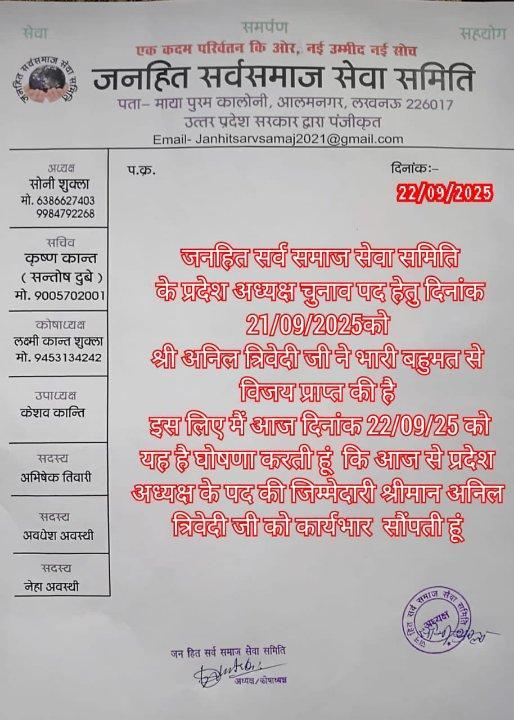 सेवा
समर्पण
सहयोग
एक कदम परिर्वतन कि ओर, नई उम्मीद नई सोच
जनहित सर्वसमाज सेवा समिति
पता– माया पुरम कालोनी, आलमनगर, लखनऊ 226017
उत्तर प्रदेश सरकार द्वारा पंजीकृत
Email- Janhitsarvsamaj2021@gmail.com
अध्यक्ष
सोनी शुक्ला
मो. 6386627403
9984792268
सचिव
कृष्ण कान्त
( सन्तोष दुबे )
मो. 9005702001
कोषाध्यक्ष
लक्ष्मी कान्त शुक्ला
मो. 9453134242
उपाध्यक्ष
केशव कान्ति
सदस्य
अभिषेक तिवारी
सदस्य
अवधेश अवस्थी
सदस्य
नेहा अवस्थी
प.क्र.
दिनांकः–
22/09/2025
जनहित सर्व समाज सेवा समिति
के प्रदेश अध्यक्ष चुनाव पद हेतु दिनांक
21/09/2025को
श्री अनिल त्रिवेदी जी ने भारी बहुमत से
विजय प्राप्त की है
इस लिए मैं आज दिनांक 22/09/25 को
यह है घोषणा करती हूं कि आज से प्रदेश
अध्यक्ष के पद की जिम्मेदारी श्रीमान अनिल
त्रिवेदी जी को कार्यभार सौंपती हूं
जन हित सर्व समाज सेवा समिति
अध्यक्ष
जन हित सर्व समाज सेवा समिति
अध्यक्ष/कोषाध्यक्ष